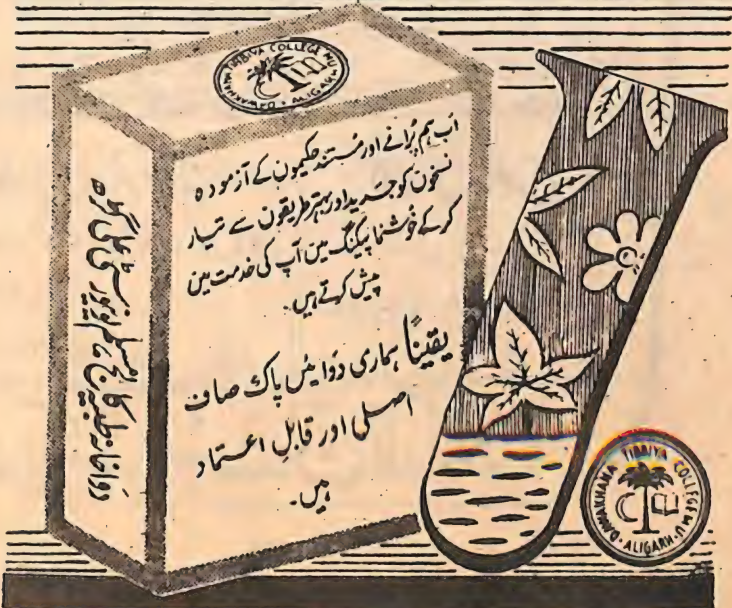 DAWAKHANA TIBBIYA COLLEGE M.U. ALIGARH
اَب ہم پُرانے اور مُستند حکیموں کے آزمودہ
نسخوں کو جدید اور بہتر طریقوں سے تیار
کر کے خوشنما پیکنگ میں آپ کی خدمت میں
پیش کرتے ہیں۔
یقیناً ہماری دوائیں پاک صاف
اصلی اور قابلِ اعتماد
ہیں۔
دواخانہ طبیہ کالج مسلم یونیورسٹی علی گڑھ
DAWAKHANA TIBBIYA COLLEGE M.U. ALIGARH